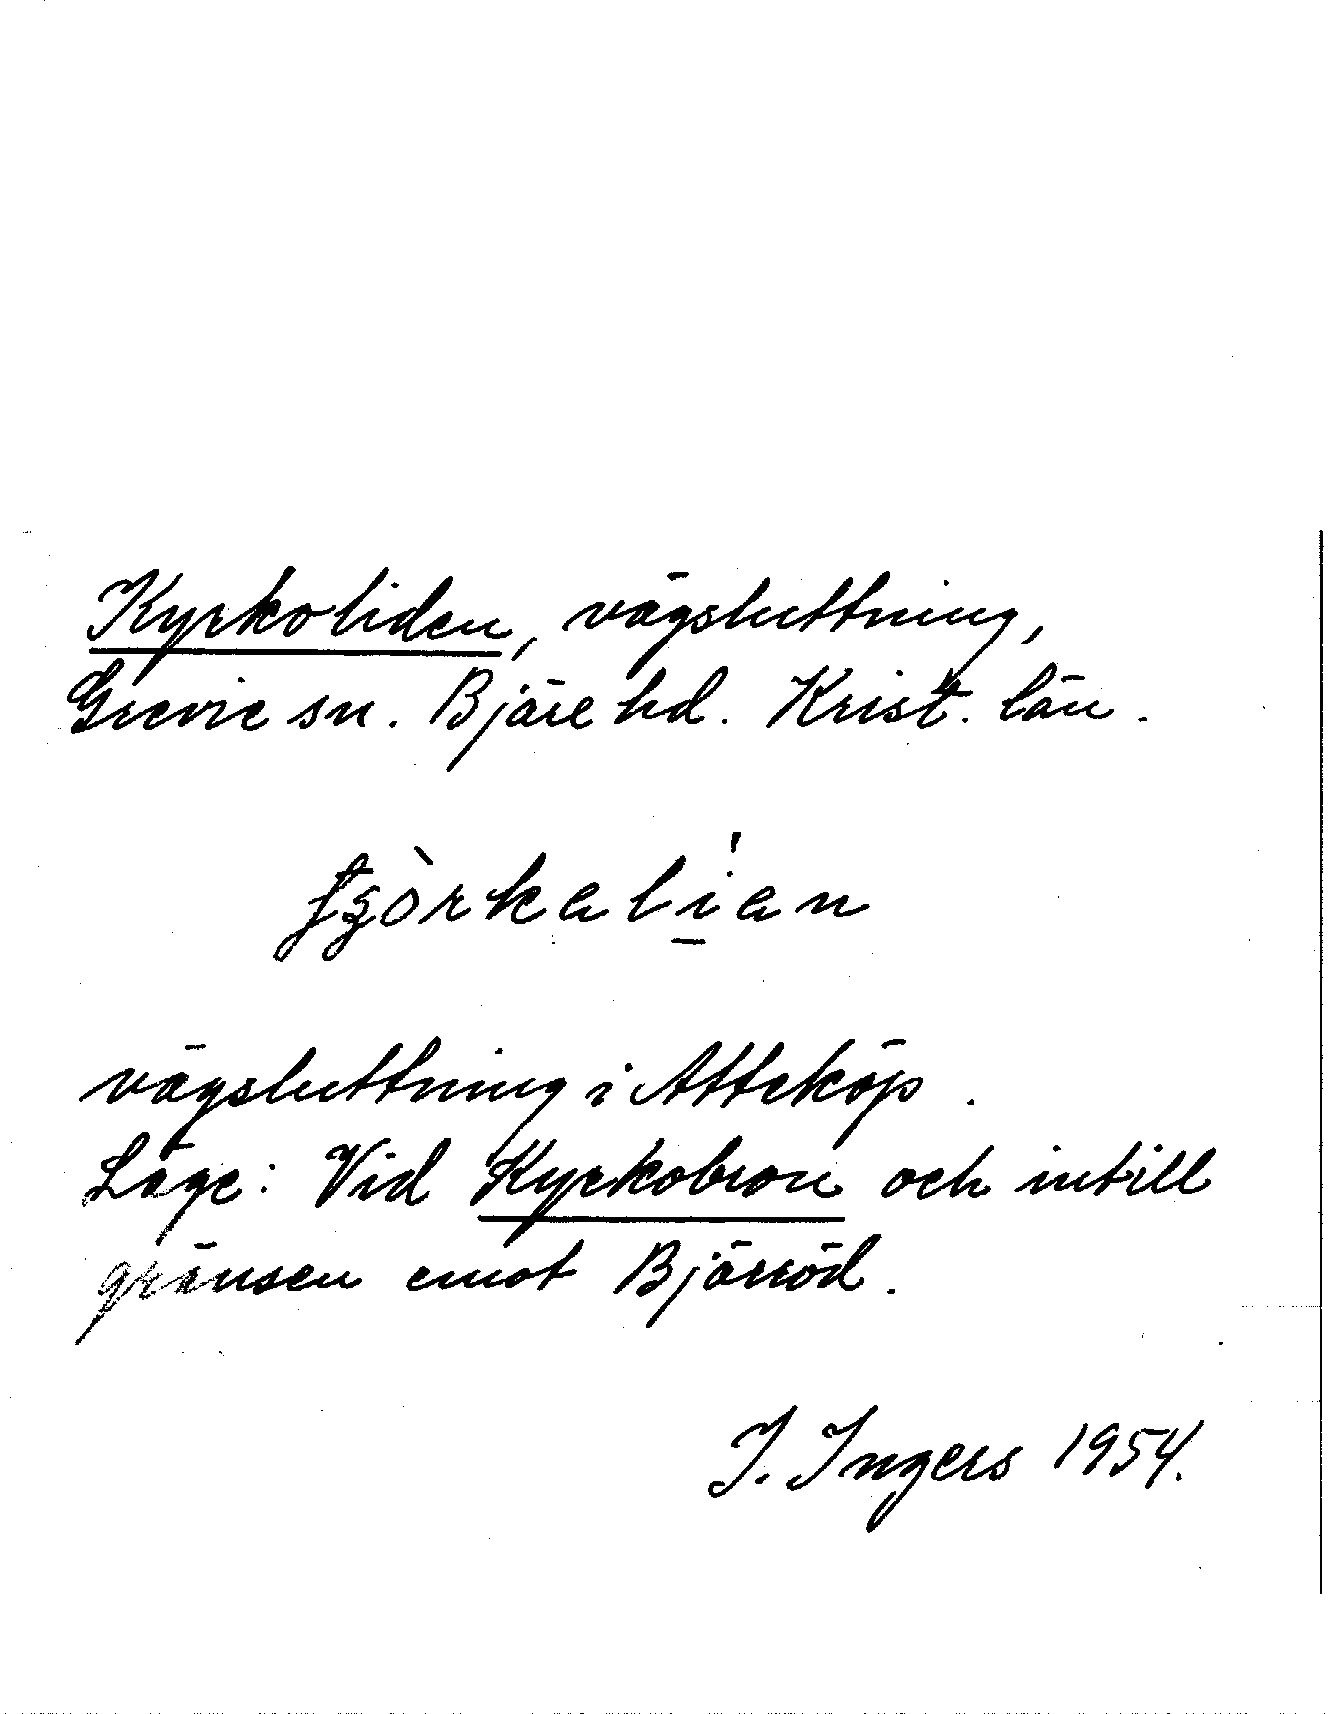 Kyrkoliden, vägsluttning,
Grevie sn. Bjäre hd. Krist. län.
vägsluttning i Atteköp.
Läge: Vid Kyrkobron och intill
gränsen emot Bjärröd.
I. Ingers 1954.